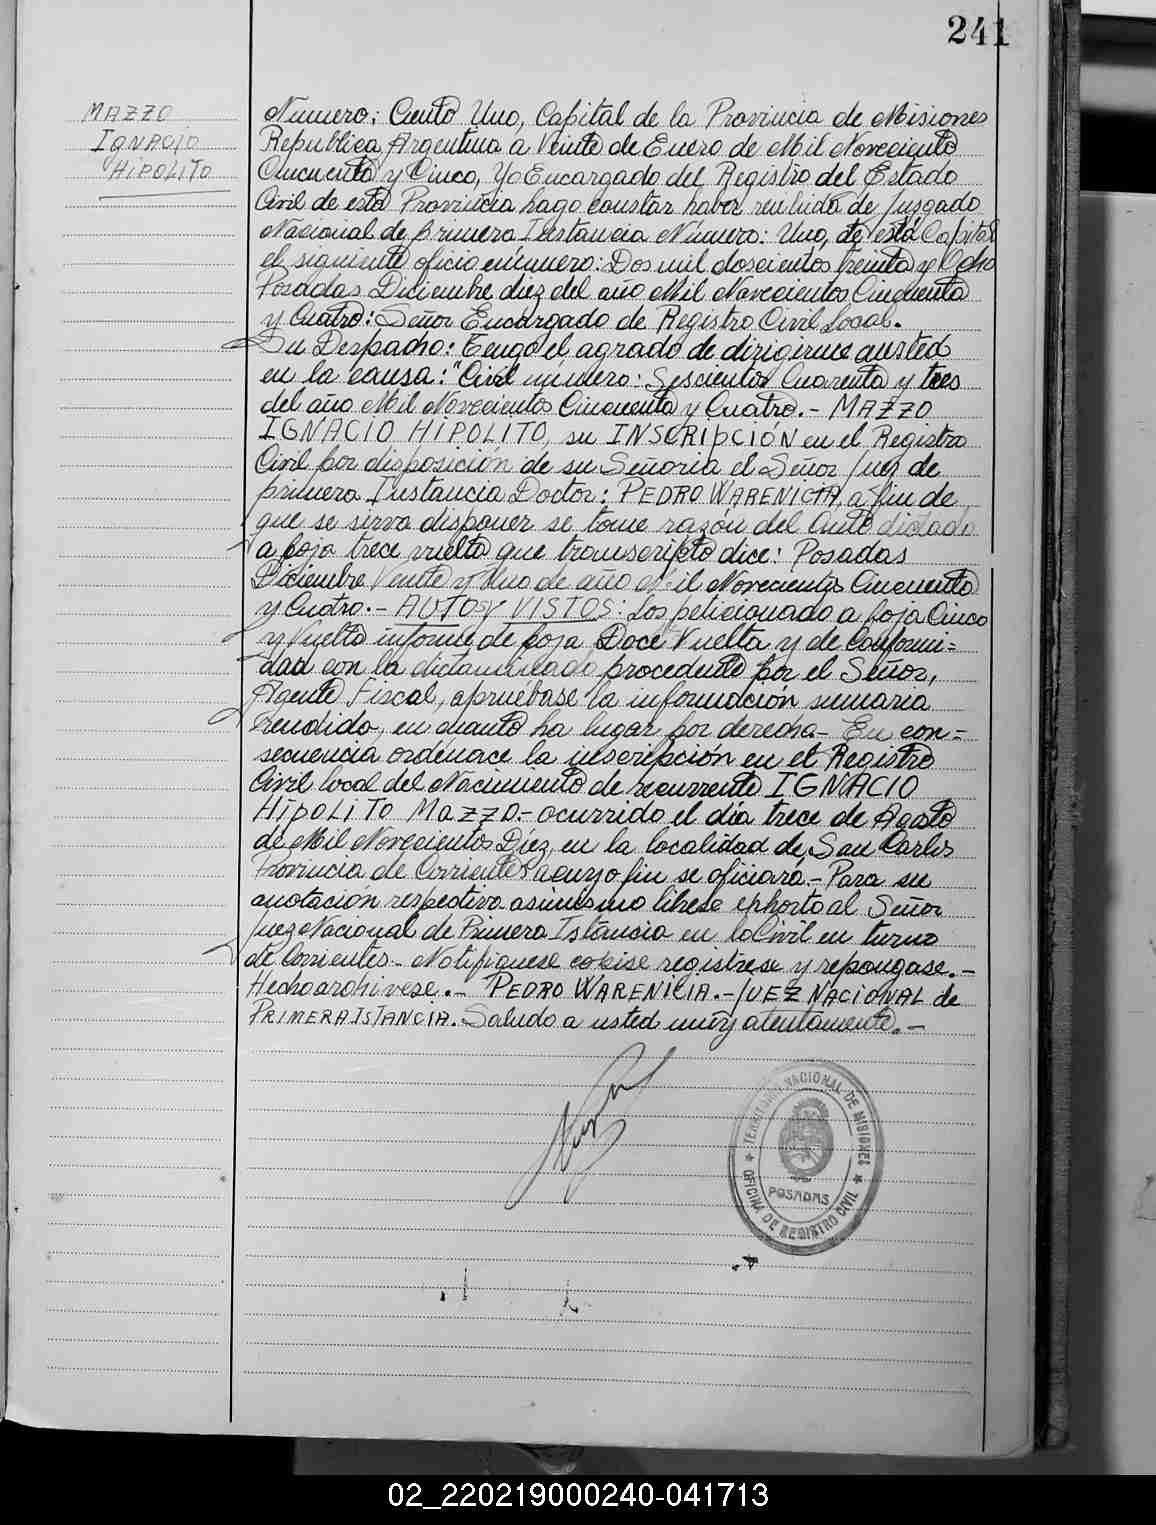 241
MAZZO
IGNACIO
HIPOLITO
Numero: Ciento Uno, Capital de la Provincia de Misiones
Republica Argentina a Veinte de Enero de Mil Novecientos
Cincuenta y Cinco, Yo Encargado del Registro del Estado
Civil de esta Provincia hago constar haber recibido de Juzgado
Nacional de primera Instancia Número: Uno, de esta Capital
el siguiente oficio numero: Dos mil doscientos treinta y Ocho
Posadas Diciembre diez del año Mil Novecientos Cincuenta
y Cuatro: Señor Encargado de Registro Civil Local.
Su Despacho: Tengo el agrado de dirigirme a usted
en la causa: "Civil número: Seiscientos Cuarenta y tres
del año Mil Novecientos Cincuenta y Cuatro.- MAZZO
IGNACIO HIPOLITO, su INSCRIPCIÓN en el Registro
Civil por disposición de su Señoria el Señor Juez de
primera Instancia Doctor: PEDRO WARENICIA, a fin de
que se sirva disponer se tome razón del Auto dictado
a foja trece vuelta que transcripto dice: Posadas
Diciembre Veinte y Uno de año Mil Novecientos Cincuenta
y Cuatro.- AUTOS Y VISTOS: Los peticionado a foja Cinco
y Vuelta informe de foja Doce Vuelta y de Conformi=
dad con la dictaminado procedente por el Señor,
Agente Fiscal, apruébase la información sumaria
rendida, en cuanto ha lugar por derecho- En con=
secuencia ordenace la inscripción en el Registro
Civil local del Nacimiento de recurrente IGNACIO
HIPOLITO MAZZO.- ocurrido el día trece de Agosto
de Mil Novecientos Diez, en la localidad de San Carlos
Provincia de Corrientes a cuyo fin se oficiara.- Para su
anotación respectiva asimismo librese exhorto al Señor
Juez Nacional de Primera Istancia en lo Civil en turno
de Corrientes.- Notifiquese copise registrese y repongase.-
Hecho archivese.- PEDRO WARENICIA.- JUEZ NACIONAL de
PRIMERA ISTANCIA. Saludo a usted muy atentamente.-
TERRITORIO NACIONAL DE MISIONES
POSADAS
OFICINA DE REGISTRO CIVIL
02_220219000240-041713